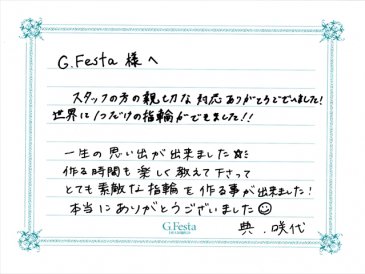 G.Festa 様へ
スタッフの方の親切な対応ありがとうございました!
世界に1つだけの指輪ができました!!
一生の思い出が出来ました☆彡
作る時間も楽しく教えて下さって
とても素敵な指輪を作る事が出来ました!
本当にありがとうございました☺
典.咲代
G.Festa